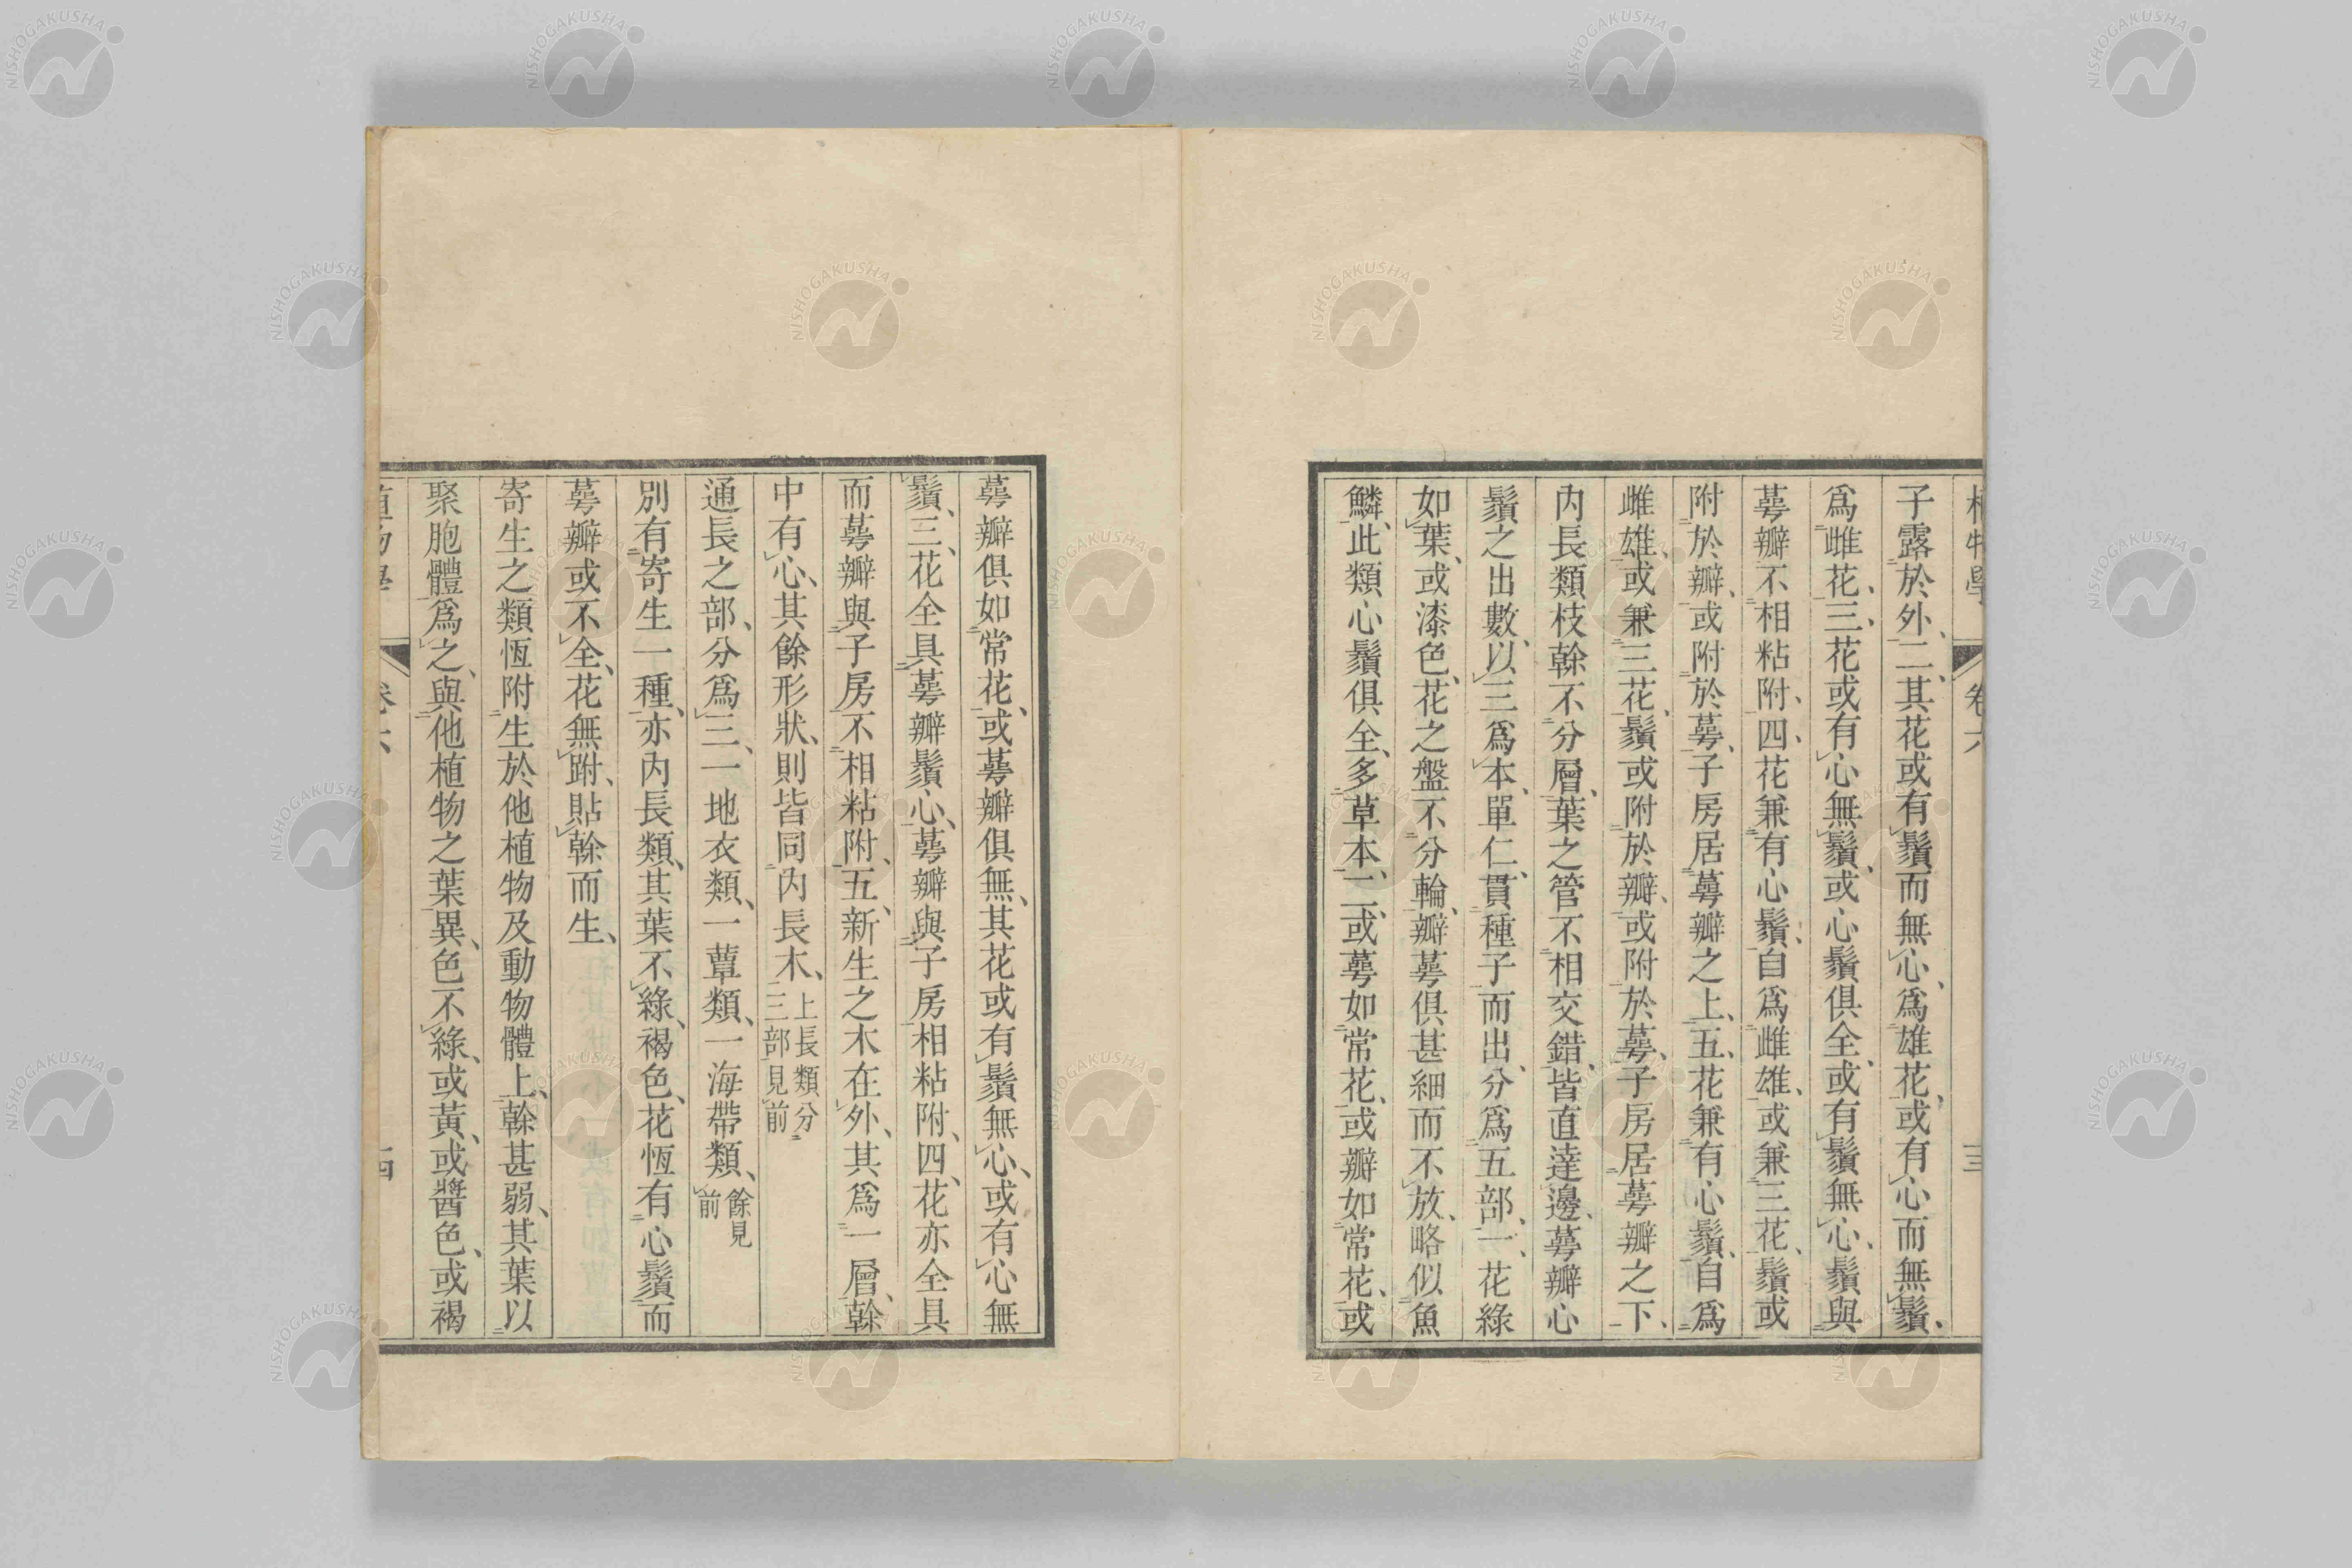 子露於外、二、其花或有鬚而無心、爲雄花、或有心而無鬚、
爲雌花、三、花或有心無鬚、或心鬚俱全、或有鬚無心、鬚與
萼瓣不相粘附、四、花兼有心鬚、自爲雌雄、或兼三花、鬚或
附於瓣、或附於萼、子房居萼瓣之上、五、花兼有心鬚、自爲
雌雄、或兼三花、鬚或附於瓣、或附於萼、子房居萼瓣之下、
內長類枝榦不分層、葉之管不相交錯、皆直達邊、萼瓣心
鬚之出數、以三爲本、單仁、貫種子而出、分爲五部、一、花綠
如葉、或漆色、花之盤不分輪、瓣萼俱甚細而不放、略似魚
鱗、此類心鬚俱全、多草本、二、或萼如常花、或瓣如常花、或
萼瓣俱如常花、或萼瓣俱無、其花或有鬚無心、或有心無
鬚、三、花全具萼瓣鬚心、萼瓣與子房相粘附、四、花亦全具
而萼瓣與子房不相粘附、五、新生之木在外、其爲一層、榦
中有心、其餘形狀、則皆同內長木、上長類分三部見前
通長之部、分爲三、一地衣類、一蕈類、一海帶類、餘見前
別有寄生一種、亦內長類、其葉不綠、褐色、花恆有心鬚而
萼瓣或不全、花無跗、貼榦而生、
寄生之類恆附生於他植物及動物體上、榦甚弱、其葉以
聚胞體爲之、與他植物之葉異、色不綠、或黃、或醬色、或褐
NISHOGAKUSHA